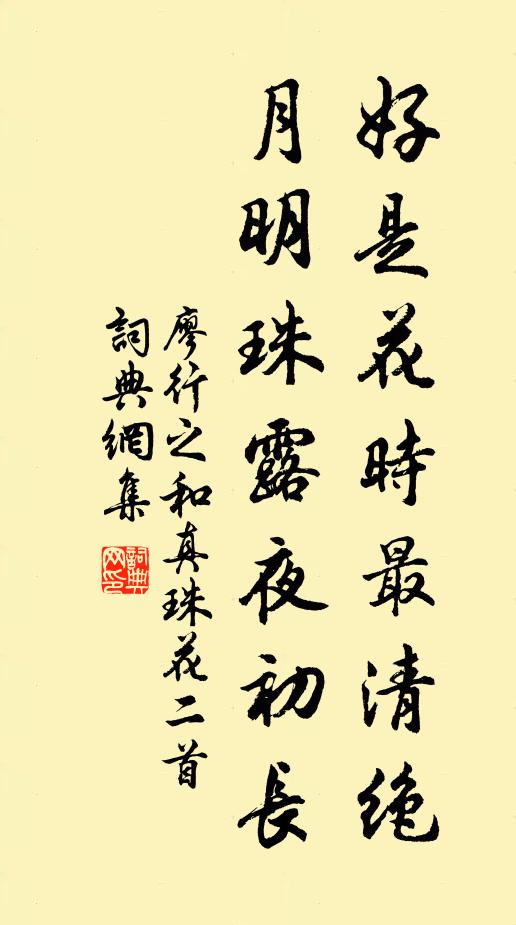 好是花時最清絶
月明珠露夜初長
廖行之和真珠花二首
詞典網集
詞典網印